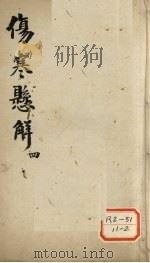 傷寒懸解
四
R2-51
11-2
mtoou.info